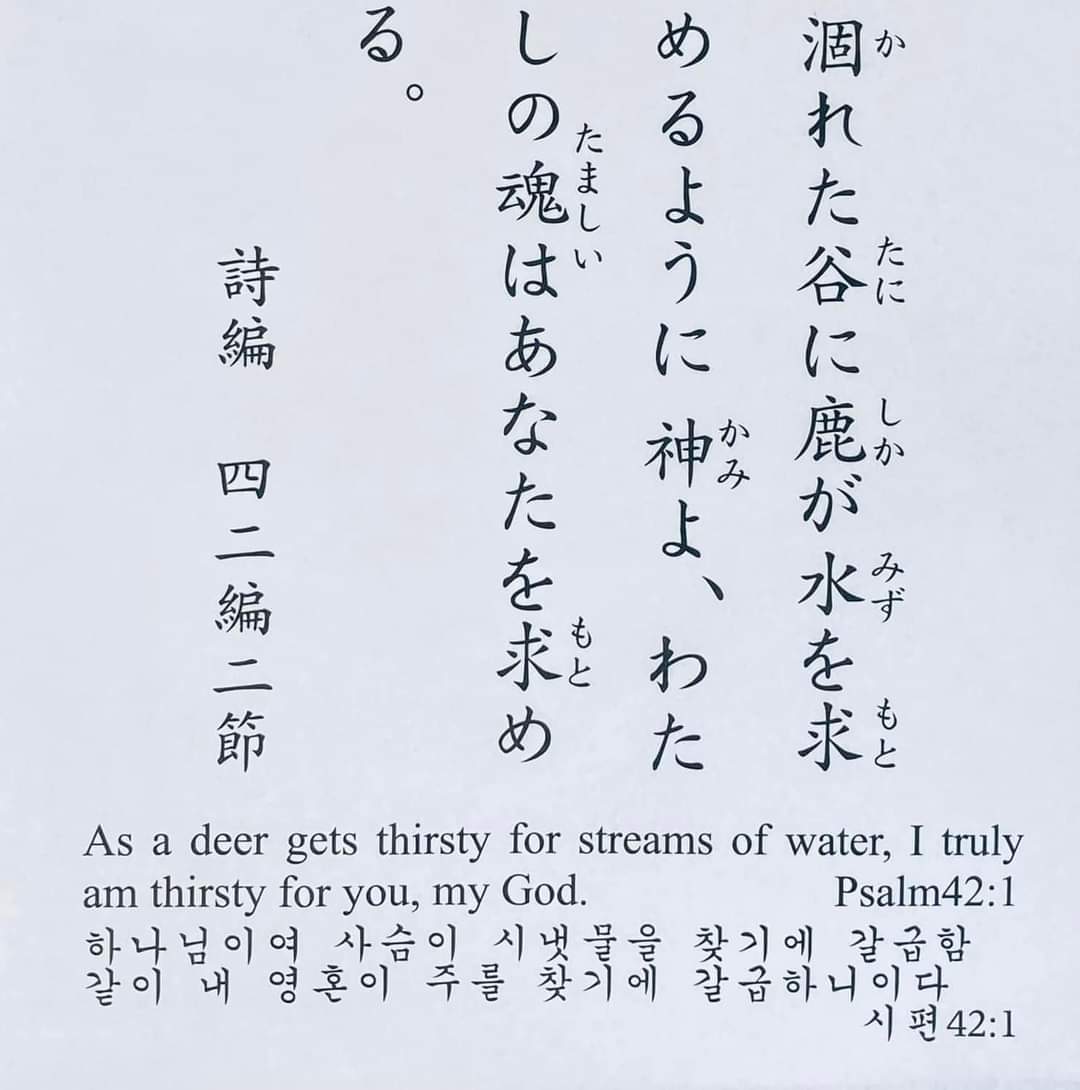 涸れた谷に鹿が水を求
か たに しか みず もと
めるように 神よ、わた
かみ
しの魂はあなたを求め
たましい もと
る。
詩編 四二編二節
As a deer gets thirsty for streams of water, I truly
am thirsty for you, my God. Psalm42:1
하나님이여 사슴이 시냇물을 찾기에 갈급함
같이 내 영혼이 주를 찾기에 갈급하니이다
시편42:1